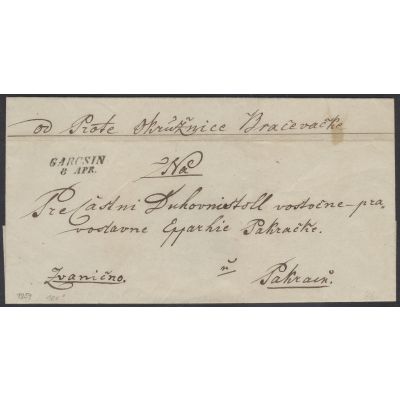 od Prote Okružnice Bračevačke
GARCSIN
8 APR.
Na
Prečastni Duhovni stoll vostočne-pra-
voslavne Eparhie Pakračke.
u
Zvanično. Pakracu.
1859